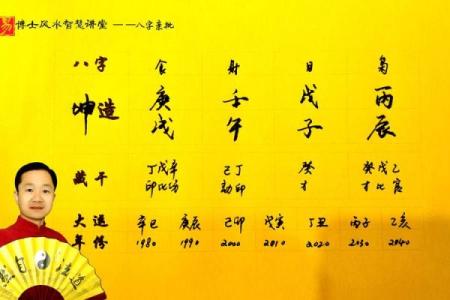 易 博士风水智慧讲堂 ——八字亲批
八字 食 财 日 枭
坤造 庚 壬 戊 丙
戌 午 子 辰
藏干 丁戊辛 己丁 癸 癸戊乙
印比伤 劫印 才 才比官
大运 辛巳 庚辰 己卯 戊寅 丁丑 丙子 乙亥
年份 1980 1990 2000 2010 2020 2030 2040
然自法道